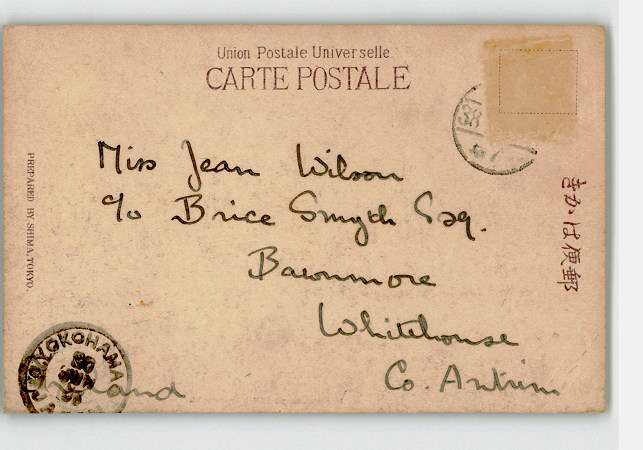 Union Postale Universelle
CARTE POSTALE
Miss Jean Wilson
c/o Brice Smyth Esq.
Bawnmore
Whitehouse
Co. Antrim
Ireland
PREPARED BY SHIMA, TOKYO.
きかは便郵
YOKOHAMA